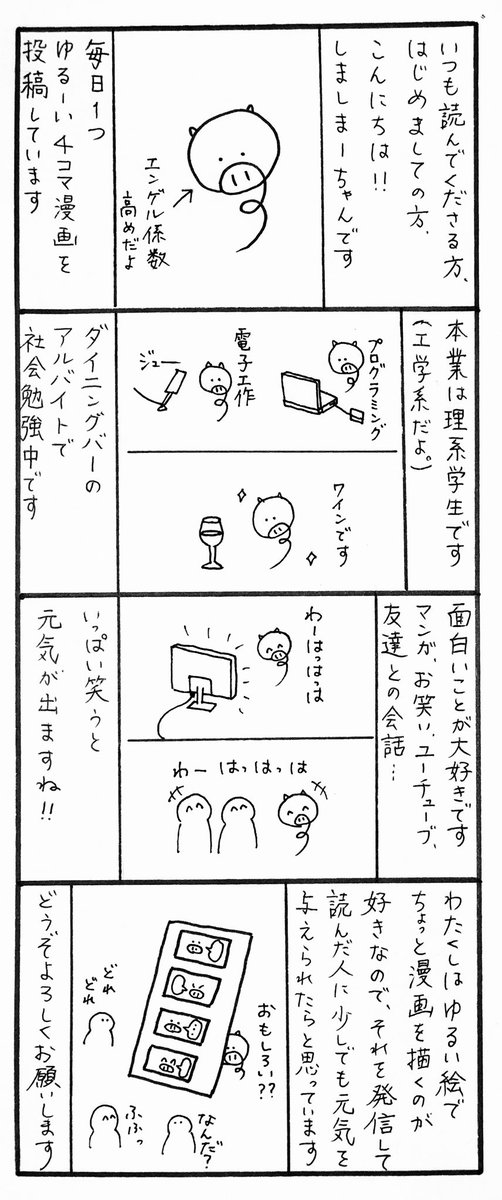 いつも読んでくださる方、
はじめましての方、
こんにちは!!
しましまーちゃんです
エンゲル係数
高めだよ
毎日1つ
ゆるーい4コマ漫画を
投稿しています
本業は理系学生です
(工学系だよ。)
プログラミング
電子工作
ジュー
ワインです
ダイニングバーの
アルバイトで
社会勉強中です
面白いことが大好きです
マンガ、お笑い、ユーチューブ、
友達との会話…
わーはっはっは
わーはっはっは
いっぱい笑うと
元気が出ますね!!
わたくしはゆるい絵で
ちょっと漫画を描くのが
好きなので、それを発信して
読んだ人に少しでも元気を
与えられたらと思っています
おもしろい??
どれ
どれ
なんだ?
ふふっ
どうぞよろしくお願いします